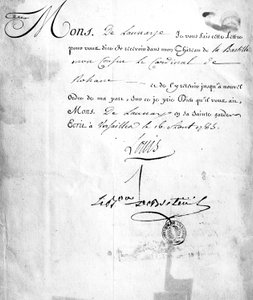 Mons. De Launay Je vous fais cette Lettre
pour vous dire de recevoir dans mon Château de la Bastille
mon Cousin le Cardinal de
Rohan
et de l'y retenir jusqu'à nouvel
ordre de ma part. Sur ce je prie Dieu qu'il vous ait,
Mons. De Launay en sa Sainte garde
Ecrit à Versailles le 16 Aout 1785.
Louis